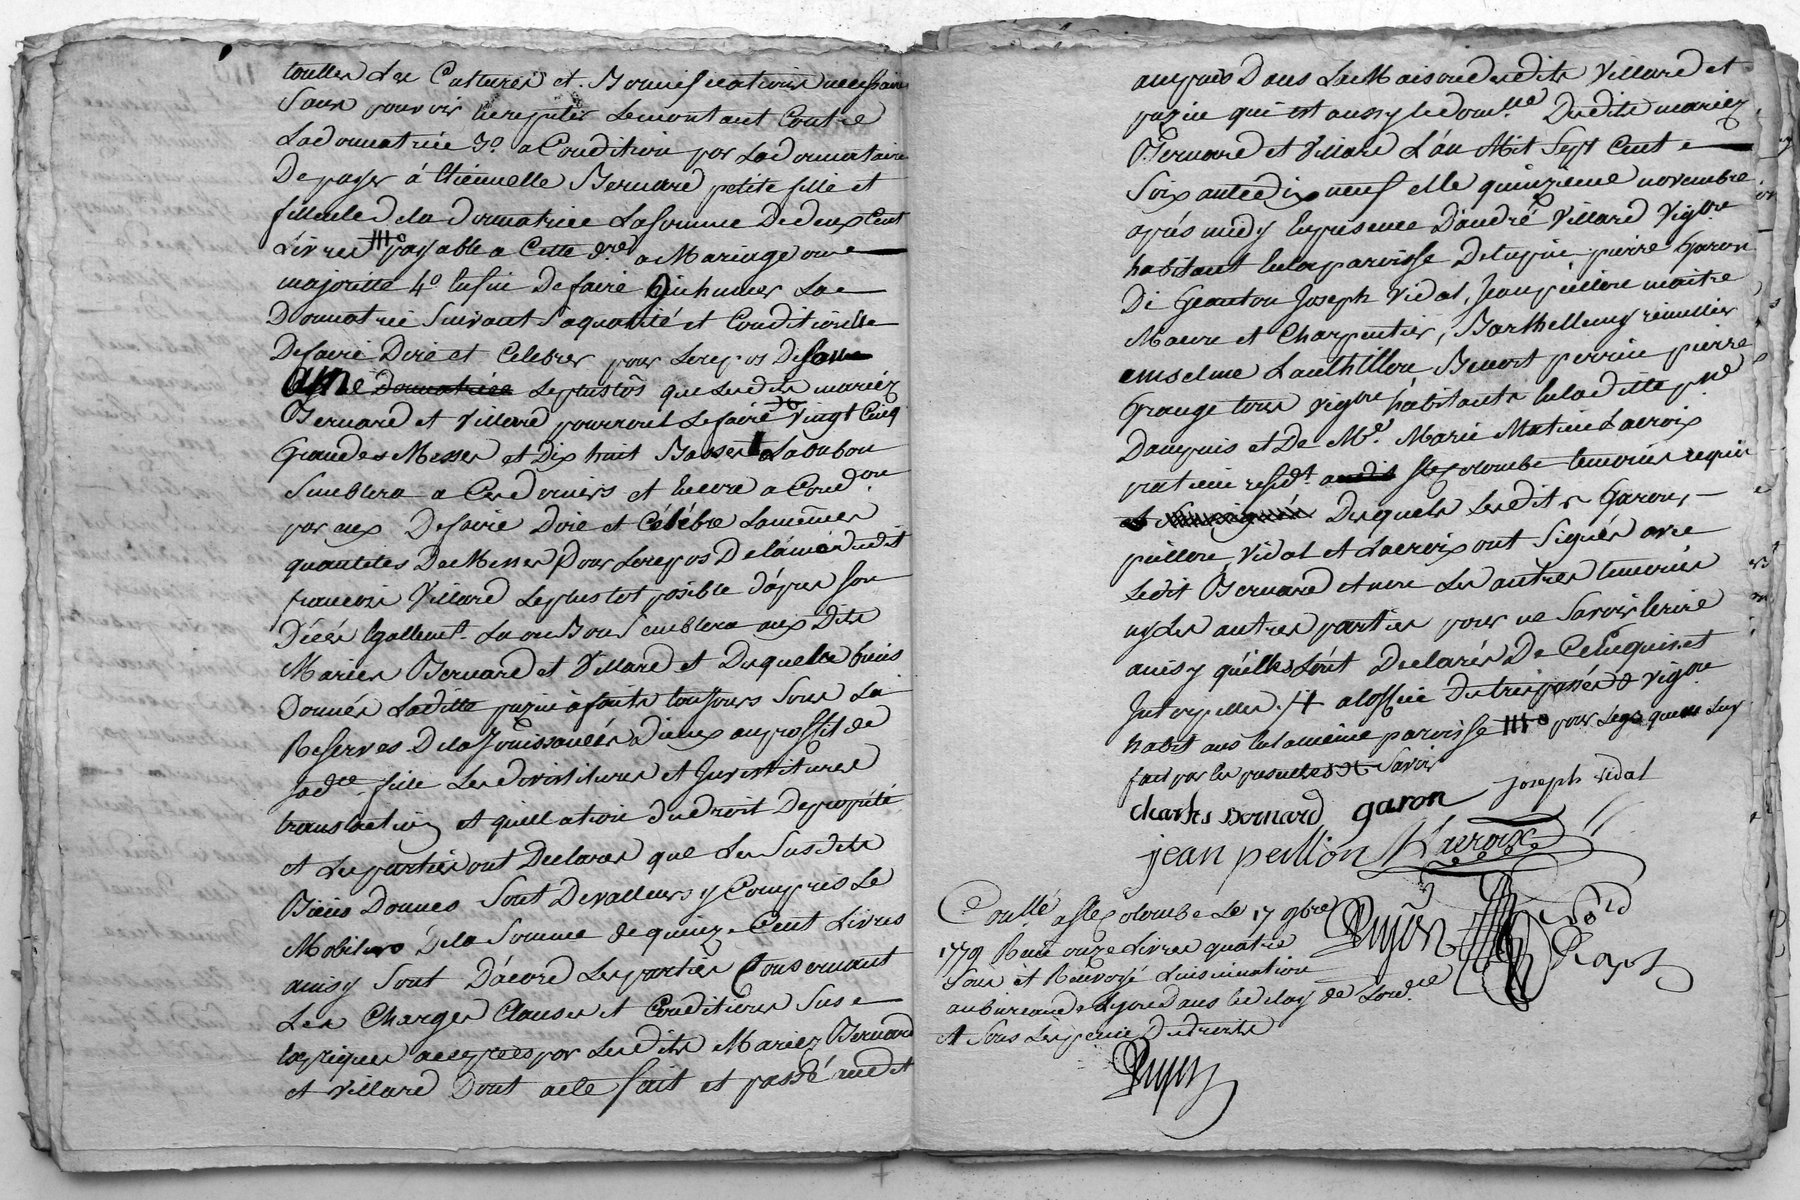 touttes Les Cultures et Bonnifications necessaires
Sans pouvoir Enreputer Lemontant Contre
Ladonnatrice 3o. a Condition par Ladonnataire
De payer á Ettiennette Bernard petite fille et
filleule de la donnatrice Lasomme Dedeux Cent
Livres payable a Cette dre. a Mariage ou
majoritté 4o. Enfin Defaire inhumer La
Donnatrice Suivant Saquallité et Condition elle
Defaire Dire et Celebrer pour Lerepos De Son
ame Leplustôs que Lesdits mariéz
Bernard et Villard pourront Lefaire Vingt Cinq
Grandes Messes et Dix huit Basses La oubon
Semblera a Ces derniers et Encore a Condon
par eux Defaire Dire et Célébré Lamêmes
quantités De Messes pour Lerepos De l'âme dudit
francois Villard Leplustot posible d'apres Son
Décés Egallemt. La ou Bon Semblera aux Dits
Mariés Bernard et Villard et Desquels biens
Donnés Laditte puzin á fait toujours Sous La
Reserves De la Jouissance a Dieux auproffit de
Sadte. fille Les devistitures et Investitures
translation et quillation Du droit Depropiété
et Les parties ont Declarés que Les Susdits
Biens Donnés Sont Devalleurs y Compris Le
Mobiliers De la Somme de quinze Cent Livres
ainsy Sont D'acord Les parties Consernant
Les Charges Clauses et Conditions Sus
Expriques acceptees par Lesdits Mariez Bernard
et Villard Dont acte fait et passé audit
ampuis Dans La Maison desdits Villard et
puzin qui est aussy le domlle. Desdits mariez
Bernard et Villard L'an Mil Sept Cent
Soixante dix neuf et le quinzieme novembre
aprés midy En presence D'andré Villard Vignon
habitant En la parroisse De tupin pierre Garon
Di Geanton Joseph Vidal, Jean peillon maitre
Macon et Charpentier, Barthellemy remillier
Benoit perrin pierre
Grange tous vignons habitants En laditte pse.
Dampuis et De Me. Marie Mathieu Lacroix
praticien residt. Ste. Colombe temoins requis
Desquels Lesdits Garon,
peillon, Vidal et Lacroix ont Signés avec
Ledit Bernard et non Les autres temoins
ny Les autres parties pour ne Savoir Ecrire
ainsy qu'elles L'ont Declarés De Ce Enquis et
Interpellés
habitans En la même parroisse
fait par les presentes
charles Bernard garon joseph vidal
jean peillon Lacroix
Conllé. a Ste. Colombe Le 17 9bre
1779 Reçu onze Livres quatre
Sous et Renvoyé Linsinuation
au bureau de Lyon dans le delay de Lordce.
et Sous Les peines De droits